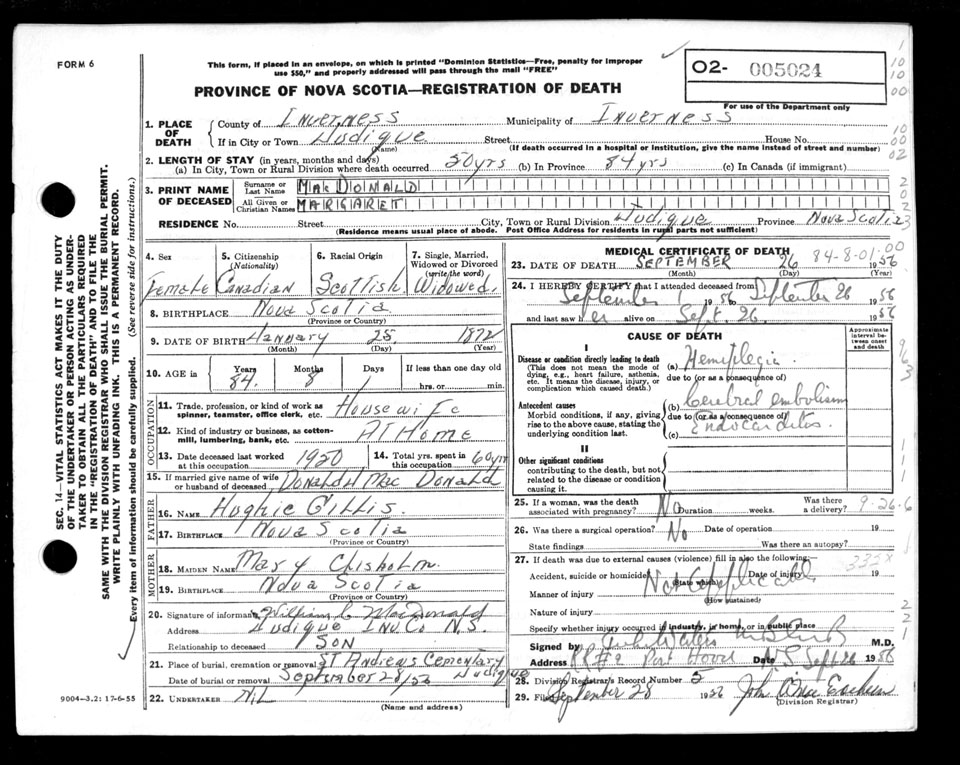 FORM 6
This form, if placed in an envelope, on which is printed "Dominion Statistics—Free, penalty for improper
use $50," and properly addressed will pass through the mail "FREE"
PROVINCE OF NOVA SCOTIA—REGISTRATION OF DEATH
O2- 005024
For use of the Department only
1. PLACE OF DEATH
County of Inverness Municipality of Inverness
If in City or Town Judique Street House No.
(Name) (If death occurred in a hospital or institution, give the name instead of street and number)
2. LENGTH OF STAY (in years, months and days)
(a) In City, Town or Rural Division where death occurred 50 yrs (b) In Province 84 yrs (c) In Canada (if immigrant)
3. PRINT NAME OF DECEASED
Surname or Last Name MacDONALD
All Given or Christian Names MARGARET
RESIDENCE No. Street City, Town or Rural Division Judique Province Nova Scotia
(Residence means usual place of abode. Post Office Address for residents in rural parts not sufficient)
4. Sex Female
5. Citizenship (Nationality) Canadian
6. Racial Origin Scottish
7. Single, Married, Widowed or Divorced (write the word) Widowed.
8. BIRTHPLACE Nova Scotia
(Province or Country)
9. DATE OF BIRTH January 25, 1872
(Month) (Day) (Year)
10. AGE in Years 84. Months 8 Days 1 If less than one day old
hrs. or min.
OCCUPATION
11. Trade, profession, or kind of work as spinner, teamster, office clerk, etc. Housewife
12. Kind of industry or business, as cotton-mill, lumbering, bank, etc. At Home
13. Date deceased last worked at this occupation 1950
14. Total yrs. spent in this occupation 60 yrs
15. If married give name of wife or husband of deceased Donald MacDonald
FATHER
16. NAME Hughie Gillis.
17. BIRTHPLACE Nova Scotia
(Province or Country)
MOTHER
18. MAIDEN NAME Mary Chisholm.
19. BIRTHPLACE Nova Scotia
(Province or Country)
20. Signature of informant William MacDonald
Address Judique Inv. Co N.S.
Relationship to deceased Son
21. Place of burial, cremation or removal St Andrews Cementary
Date of burial or removal September 28/56 Judique
22. UNDERTAKER Nil
(Name and address)
MEDICAL CERTIFICATE OF DEATH
84-8-01.00
23. DATE OF DEATH SEPTEMBER 26 1956
(Month) (Day) (Year)
24. I HEREBY CERTIFY that I attended deceased from
September 1 1956 September 26 1956
and last saw her alive on Sept. 26 1956
CAUSE OF DEATH
Approximate interval between onset and death
I
Disease or condition directly leading to death
(This does not mean the mode of dying, e.g., heart failure, asthenia, etc. It means the disease, injury, or complication which caused death.)
(a) Hemiplegia
due to (or as a consequence of)
Antecedent causes
Morbid conditions, if any, giving rise to the above cause, stating the underlying condition last.
(b) Cerebral embolism
due to (or as a consequence of)
(c) Endocarditis.
II
Other significant conditions
contributing to the death, but not related to the disease or condition causing it.
25. If a woman, was the death associated with pregnancy? No Duration weeks. Was there a delivery?
9-26-6
26. Was there a surgical operation? No Date of operation 19
State findings Was there an autopsy?
27. If death was due to external causes (violence) fill in also the following:—
Accident, suicide or homicide? Date of injury 19
(State which)
332X
Manner of injury Not Applicable
(How sustained)
Nature of injury
Specify whether injury occurred in industry, in home, or in public place
Signed by M.D.
Address RR#2 Port Hood NS Date Sept 26 1956
28. Division Registrar's Record Number 5
29. Filed September 28 1956
(Division Registrar)
SEC. 14—VITAL STATISTICS ACT MAKES IT THE DUTY
OF THE UNDERTAKER OR PERSON ACTING AS UNDER-
TAKER TO OBTAIN ALL THE PARTICULARS REQUIRED
IN THE "REGISTRATION OF DEATH" AND TO FILE THE
SAME WITH THE DIVISION REGISTRAR WHO SHALL ISSUE THE BURIAL PERMIT.
WRITE PLAINLY WITH UNFADING INK. THIS IS A PERMANENT RECORD.
Every item of information should be carefully supplied. (See reverse side for instructions.)
9004—3.2: 17-6-55